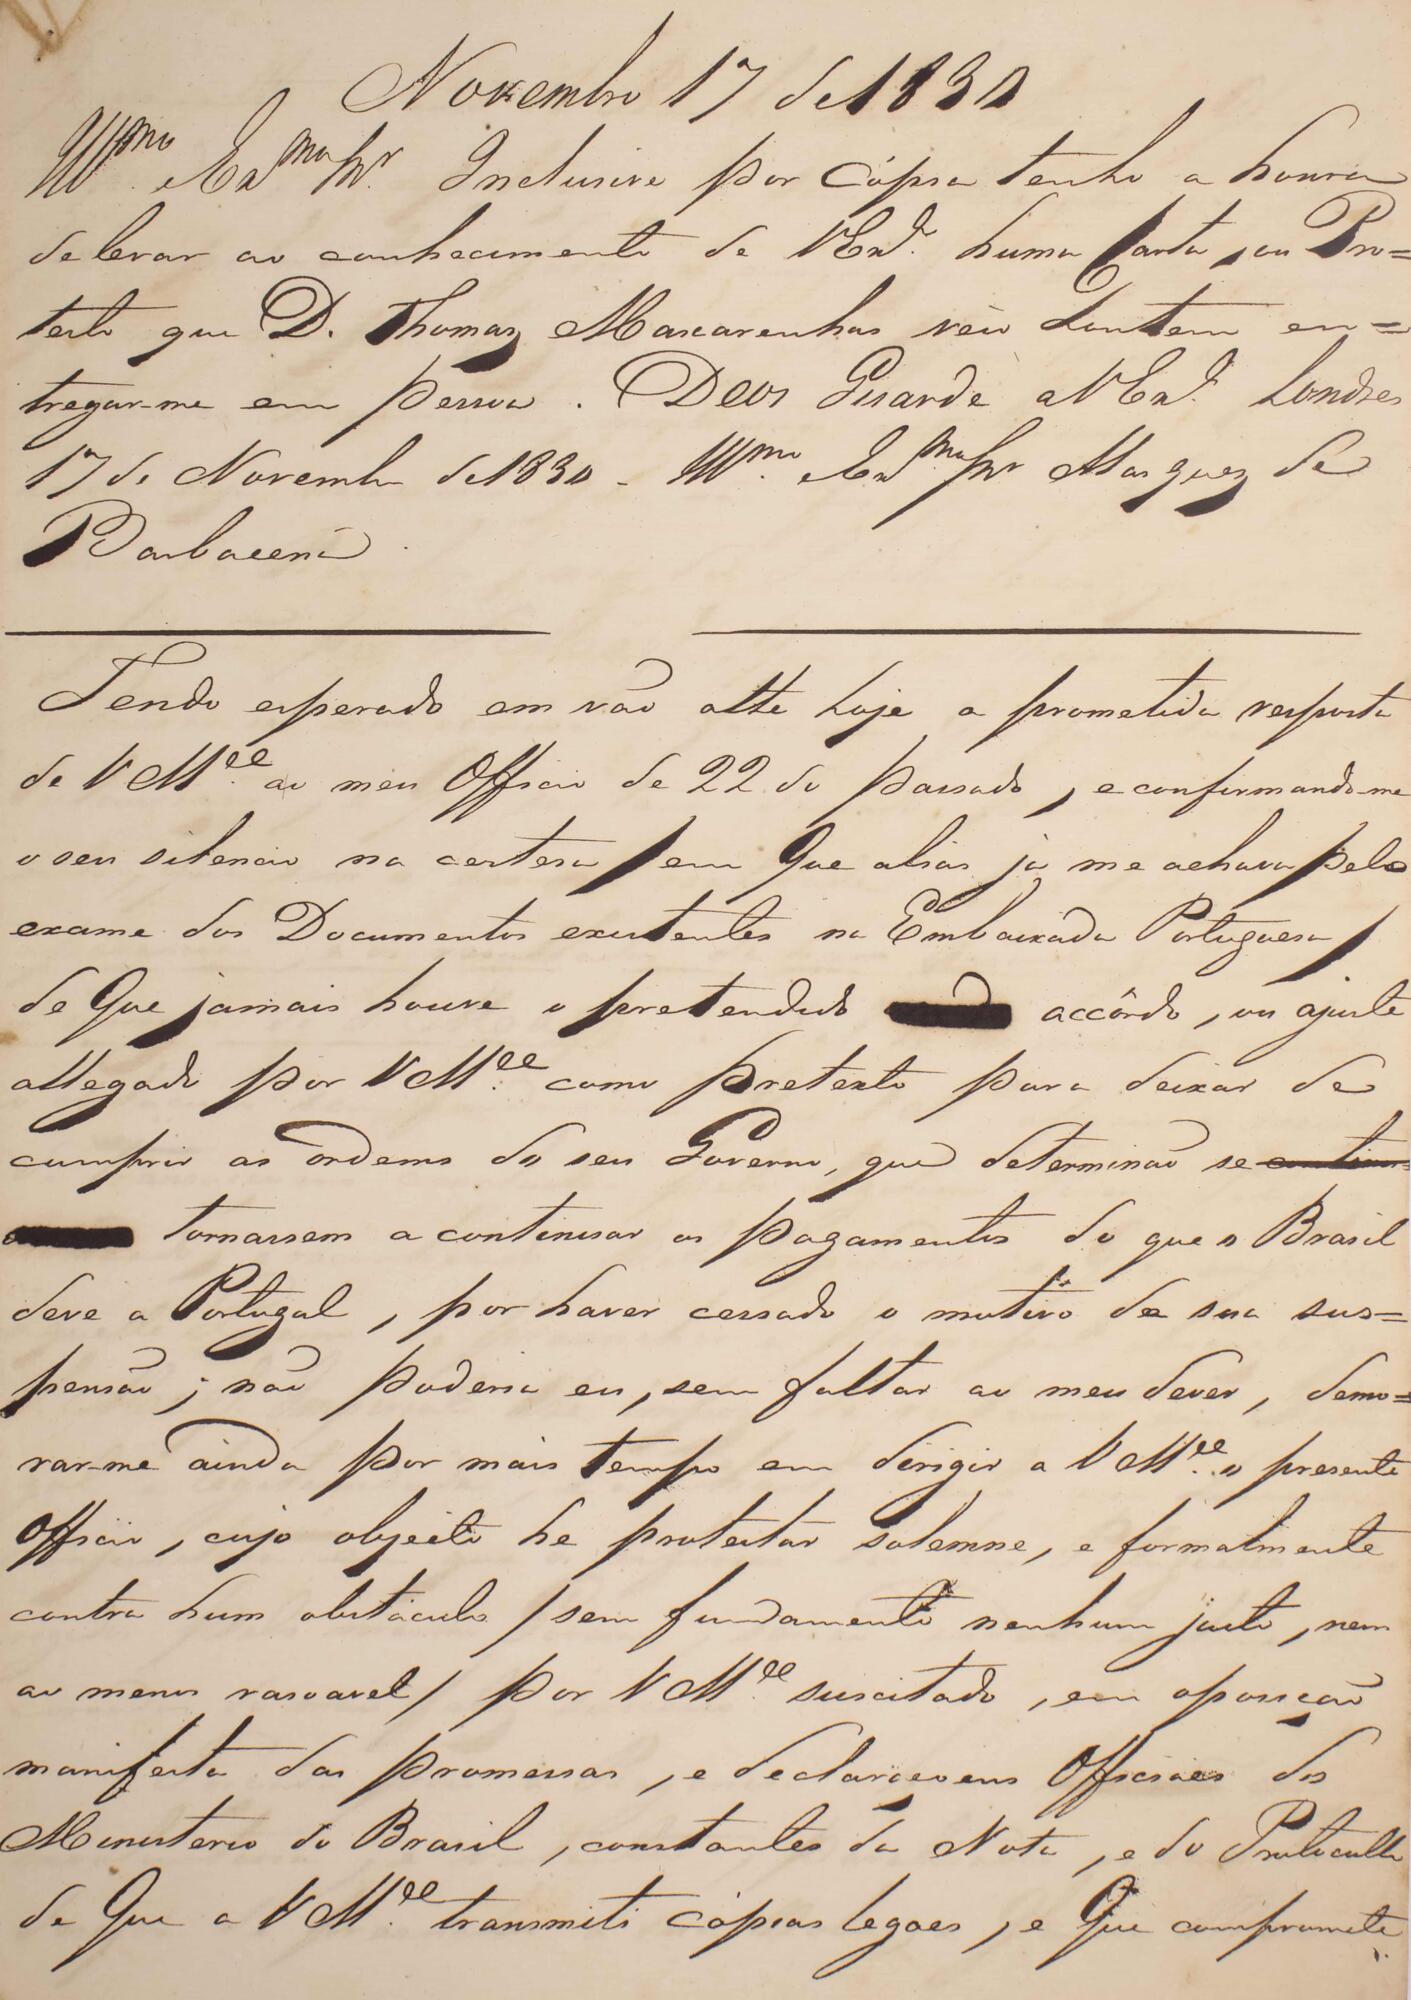 Novembro 17 de 1830
Illmo. e Exmo. Snr. Incluzive por Cópia tenho a honra
de levar ao conhecimento de VExa. huma Carta, ou Pro=
testo que D. Thomaz Mascarenhas vêio hontem en=
tregar-me em pessoa. Deos Guarde a VExa. Londres
17 de Novembro de 1830 - Illmo. e Exmo. Snr Marquez de
Barbacena
Tendo esperado em vão atte hoje a prometida resposta
de VMce. ao meu Officio de 22 do passado, e confirmando-me
o seu silencio na certesa / em que alias ja me achava pelo
exame dos Documentos existentes na Embaixada Portuguesa /
de Que jamais houve o pretendido accôrdo, ou ajuste
allegado por VMce. como pretexto para deixar de
cumprir as ordens do seu Governo, que determinão se
tornassem a continuar os pagamentos do que o Brasil
deve a Portugal, por haver cessado o motivo de sua sus=
pensão; não poderia eu, sem faltar ao meu dever, demo=
rar-me ainda por mais tempo em dirigir a VMce. o presente
Officio, cujo objécto he protestar solemne, e formalmente
contra hum obstáculo / sem fundamento nenhum justo, nem
ao menos rasoavel / por VMce. suscitado, em oposição
manifesta das promessas, e declaraçoens Officiaes do
Ministerio do Brasil, constantes da Nota, e do Protocollo
de Que a VMce. transmiti cópias legaes, e Que compromete